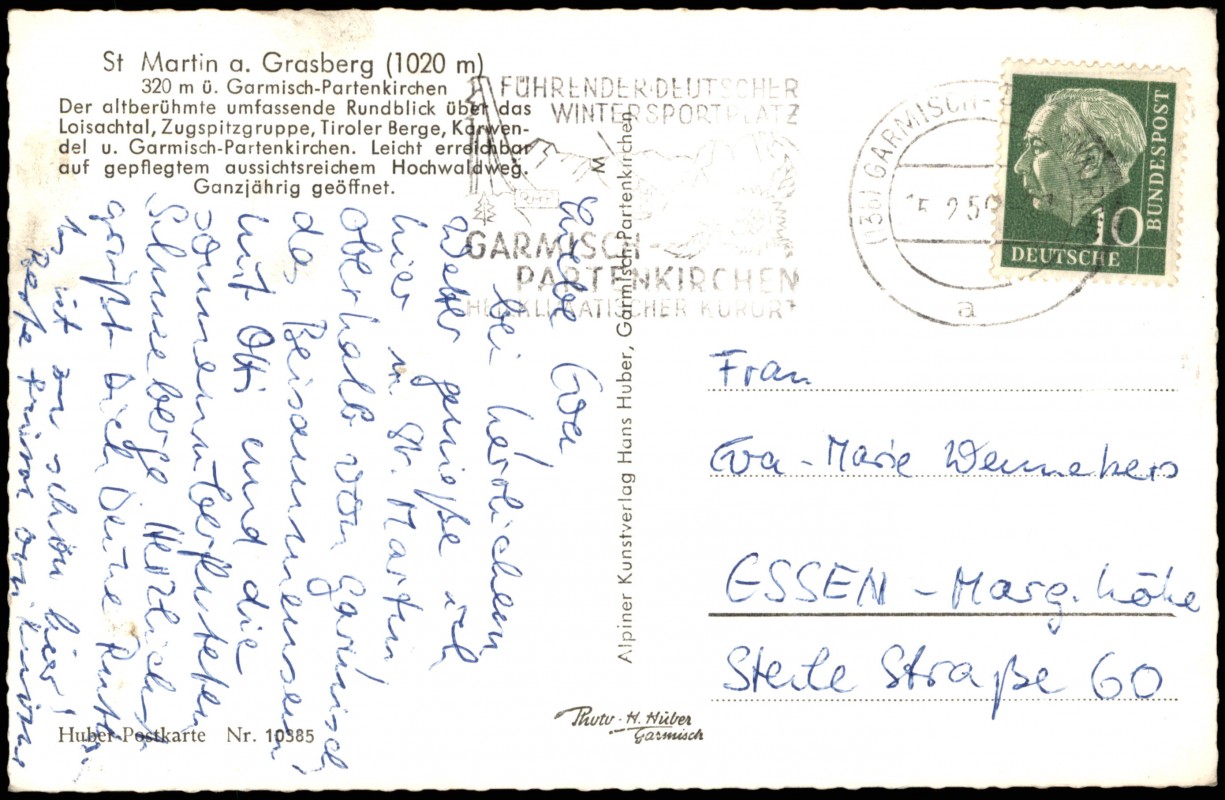 St Martin a. Grasberg (1020 m)
320 m ü. Garmisch-Partenkirchen
Der altberühmte umfassende Rundblick über das
Loisachtal, Zugspitzgruppe, Tiroler Berge, Karwen-
del u. Garmisch-Partenkirchen. Leicht erreichbar
auf gepflegtem aussichtsreichem Hochwaldweg.
Ganzjährig geöffnet.
FÜHRENDER DEUTSCHER
WINTERSPORTPLATZ
GARMISCH-
PARTENKIRCHEN
HEILKLIMATISCHER KURORT
(13b) GARMISCH-
15.2.59
a
BUNDESPOST
10
DEUTSCHE
Liebe Eva
bei herrlichem
Wetter genieße ich
hier in St. Martin
oberhalb von Garmisch
das Beisammensein
mit Otti und die
sonnenüberfluteten
Schneeberge. Herzlichst
grüßt Dich Deine
Es ist so schön hier!
M
Alpiner Kunstverlag Hans Huber, Garmisch-Partenkirchen
Frau
Eva-Marie Wennekers
ESSEN - Marg. höhe
Steile Straße 60
Photo-H. Huber
Garmisch
Huber-Postkarte Nr. 10385